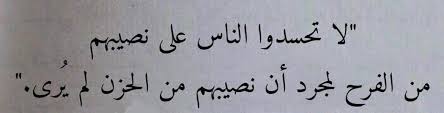 "لا تحسدوا الناس على نصيبهم
من الفرح لمجرد أن نصيبهم من الحزن لم يُرى."